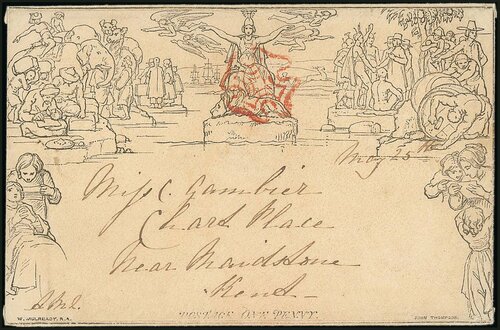 May 25th
Miss C. Gambier
Chart Place
Near Maidstone
Kent
POSTAGE ONE PENNY.
W. MULREADY, R.A.
JOHN THOMPSON.